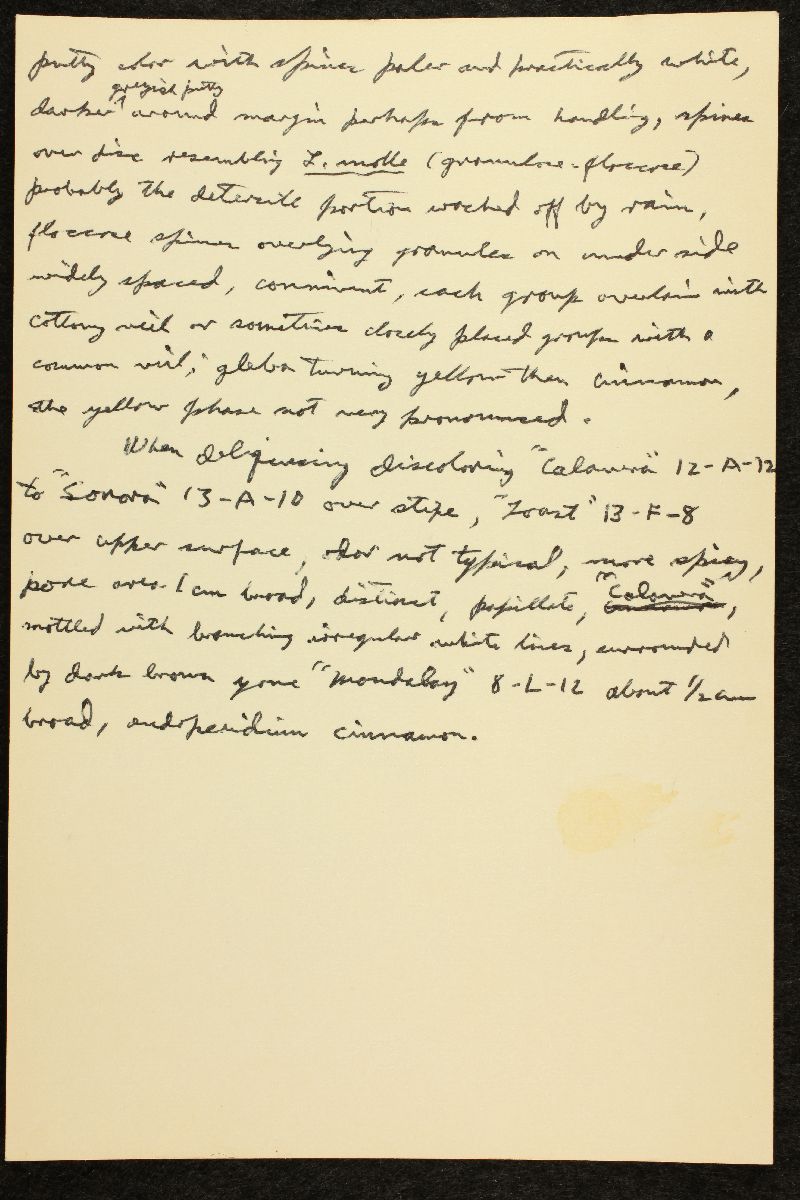 putty color with spines paler and practically white,
greyish putty
darker around margin perhaps from handling, spines
over disc resembling L. molle (granulose-floccose)
probably the detersile portion washed off by rain,
floccose spines overlying granules on under side
widely spaced, connivent, each group overlain with
cottony veil or sometimes closely placed groups with a
common veil; gleba turning yellow then cinnamon,
the yellow phase not very pronounced.
When deliquescing discoloring "Calavera" 12-A-12
to "Sonora" 13-A-10 over stipe, "Toast" 13-F-8
over upper surface, odor not typical, more spicy,
pore area 1 cm broad, distinct, papillate, "Calavera",
mottled with branching irregular white lines, surrounded
by dark brown zone "Mandalay" 8-L-12 about 1/2 cm
broad, endoperidium cinnamon.